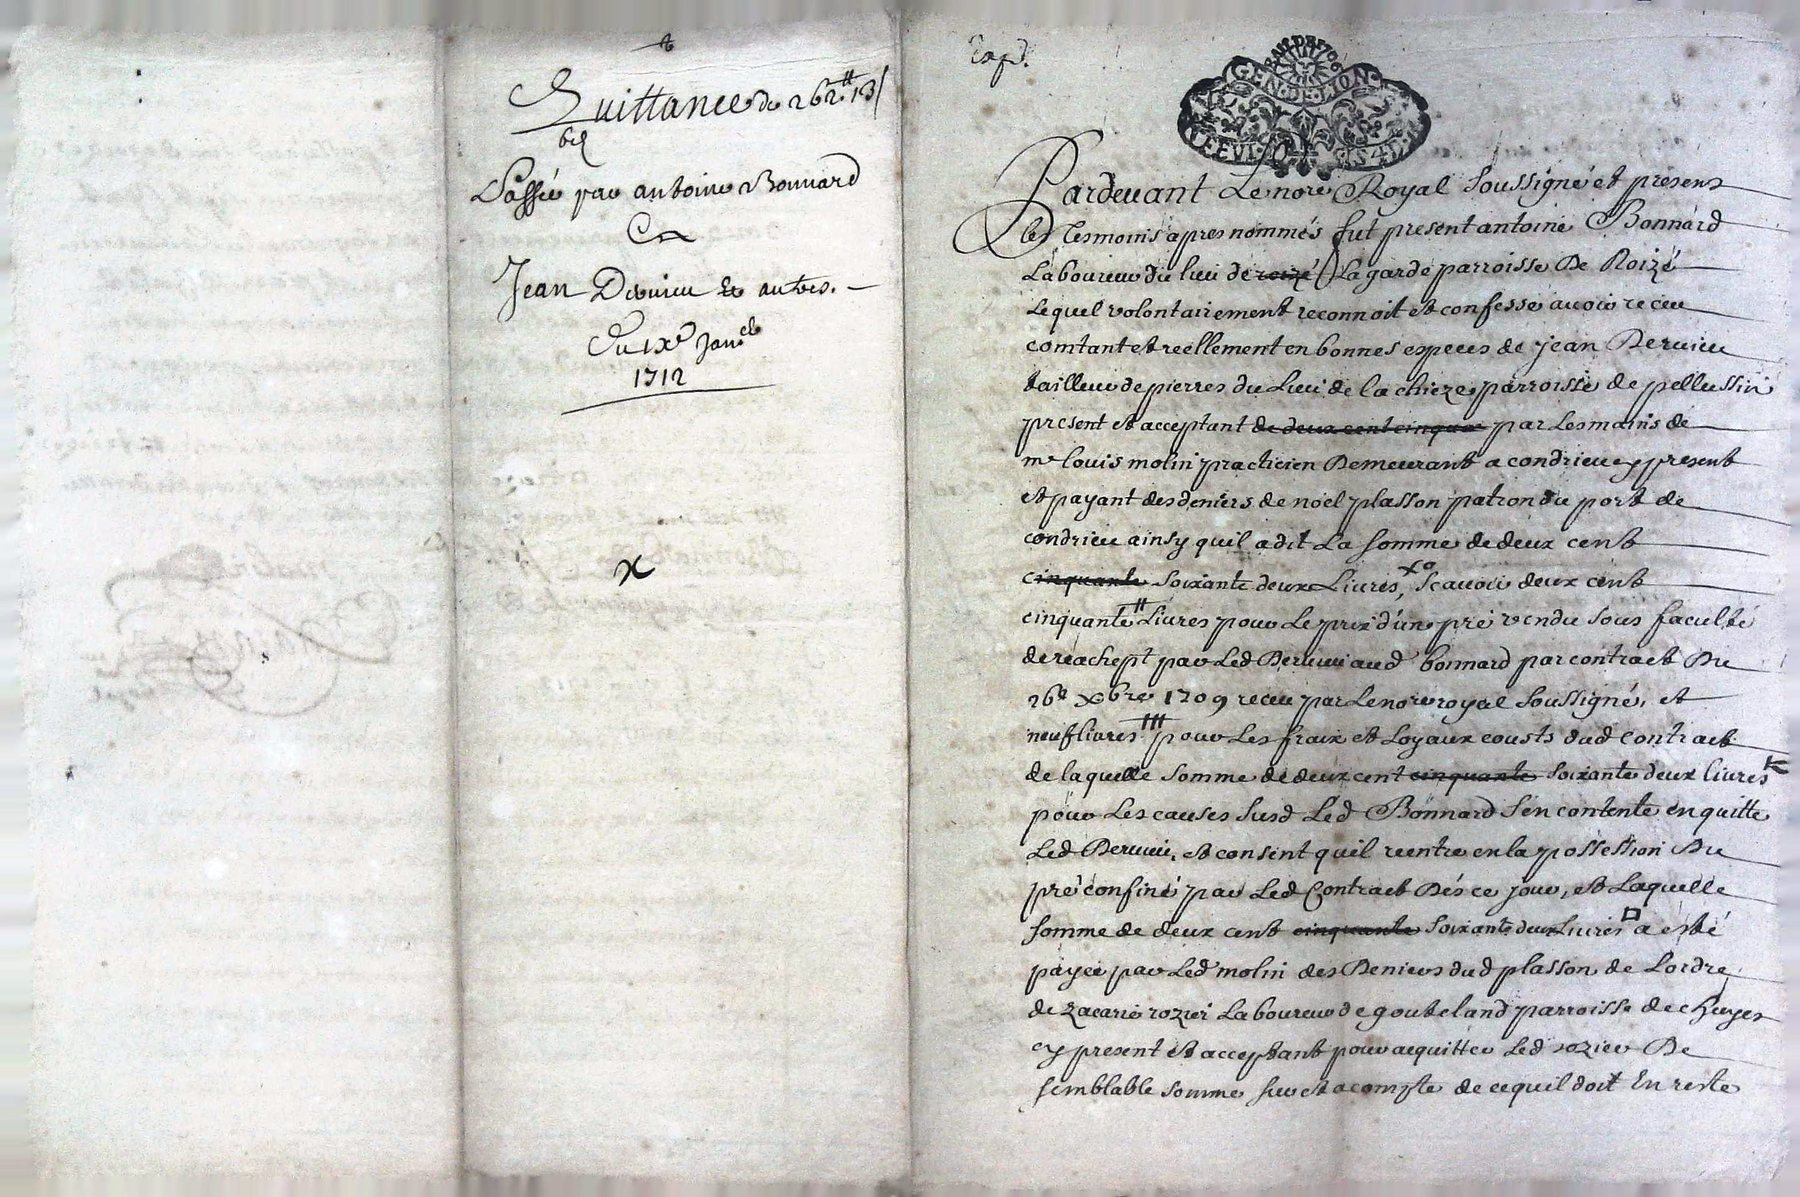 Quittance de 262ᴴ 13ˢ
6ᵈ
Passée par antoine Bonnard
Ca
Jean Deruieu et autres.
Du IXᵉ Janᵉʳ
1712
X
Expᵈ.
GEN. DE LION
Pardeuant Le noʳᵉ Royal soussigné et présens
les tesmoins apres nommés fut present antoine Bonnard
Laboureur du lieu de roizé La garde parroisse De Roizé
Lequel volontairement reconnoit et confesse auoir receu
comtant et reellement en bonnes especes de jean Deruieu
tailleur de pierres du Lieu de la chieze parroisse de pellussin
present et acceptant de deux cent cinquante par Les mains de
mʳ louis molin practicien Demeurant a condrieu cy present
et payant des deniers de noel plasson patron du port de
condrieu ainsy quil a dit La somme de deux cent
cinquante soixante deux Liures, Xᵒ Scauoir deux cent
cinquante ᴴ Liures pour Le prix d'un pré vendu sous faculté
de reachept par Led Deruieu aud bonnard par contract Du
26ᵉ Xbre 1709 receu par Le noʳᵉ royal soussigné, et
neuf liures pour Les fraix et Loyaux cousts dud contract
de laquelle somme de deux cent cinquante soixante deux liures
pour Les causes susd Led Bonnard s'en contente en quitte
Led Deruieu, et consent quil rentre en la possession Du
pré confiné par Led Contract Dés ce jour, et Laquelle
somme de deux cent cinquante soixante deux Liures a esté
payée par Led molin des Deniers dud plasson de Lordre
de Zacarie rozier Laboureur de gouteland parroisse de chuyes
cy present et acceptant pour acquitter Led rozier De
semblable somme sur et a compte de ce quil doit En reste